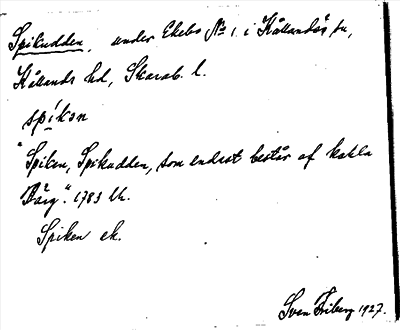 Spikudden, under Ekebo No 1 i Kållandsö sn,
Kållands hd, Skarab. l.
spíkən
"Spiken, Spikudden, som endast består af kahla
Bärg". 1783 Uh.
Spiken ek.
Sven Friberg 1927.